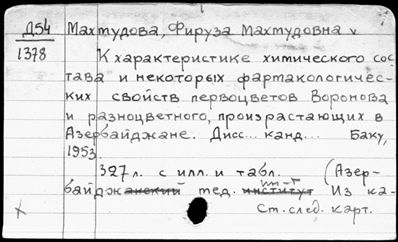 Д54 Махтудова, Фируза Махтудовна
1378 К характеристике химического сос
тава и некоторых фартакологичес-
ких свойств первоцветов Воронова
и разноцветного, произрастающих в
Азербайджане. Дисс... канд... Баку,
1953.
327 л. с илл. и табл. (Азер-
ин-т
байджанский тед. институт Из ка-
Ст. след. карт.